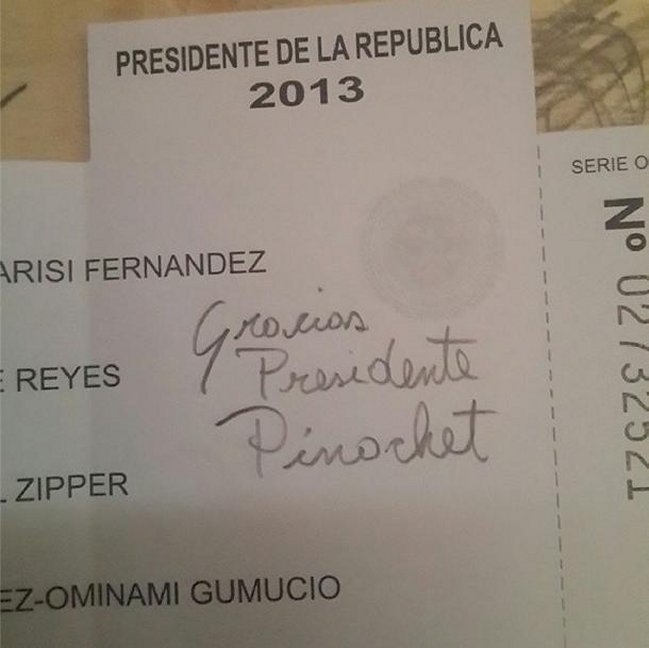 PRESIDENTE DE LA REPUBLICA
2013
SERIE O
Nº 0273252​1
ARISI FERNANDEZ
Gracias
Presidente
Pinochet
E REYES
L ZIPPER
EZ-OMINAMI GUMUCIO